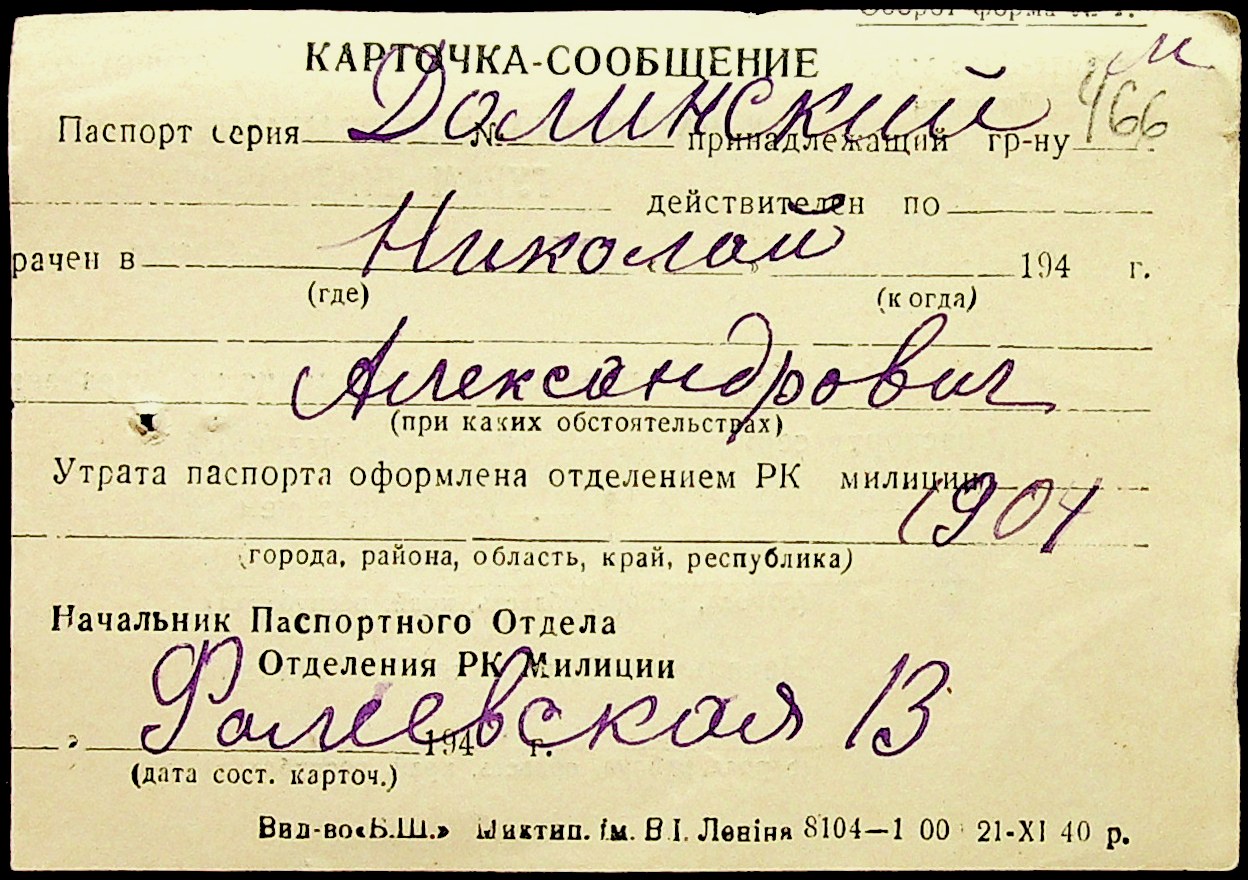 Оборот форма № 1.
КАРТОЧКА-СООБЩЕНИЕ
м
Долинский
466
Паспорт серия № принадлежащий гр-ну
действителен по
Николай
рачен в 194 г.
(где) (когда)
Александрович
(при каких обстоятельствах)
Утрата паспорта оформлена отделением РК милиции
1904
(города, района, область, край, республика)
Начальник Паспортного Отдела
Отделения РК Милиции
Фалеевская 13
194 г.
(дата сост. карточ.)
Вид-во «Б.Ш.» ім. В.І. Леніна 8104—1 00 21-XI 40 р.